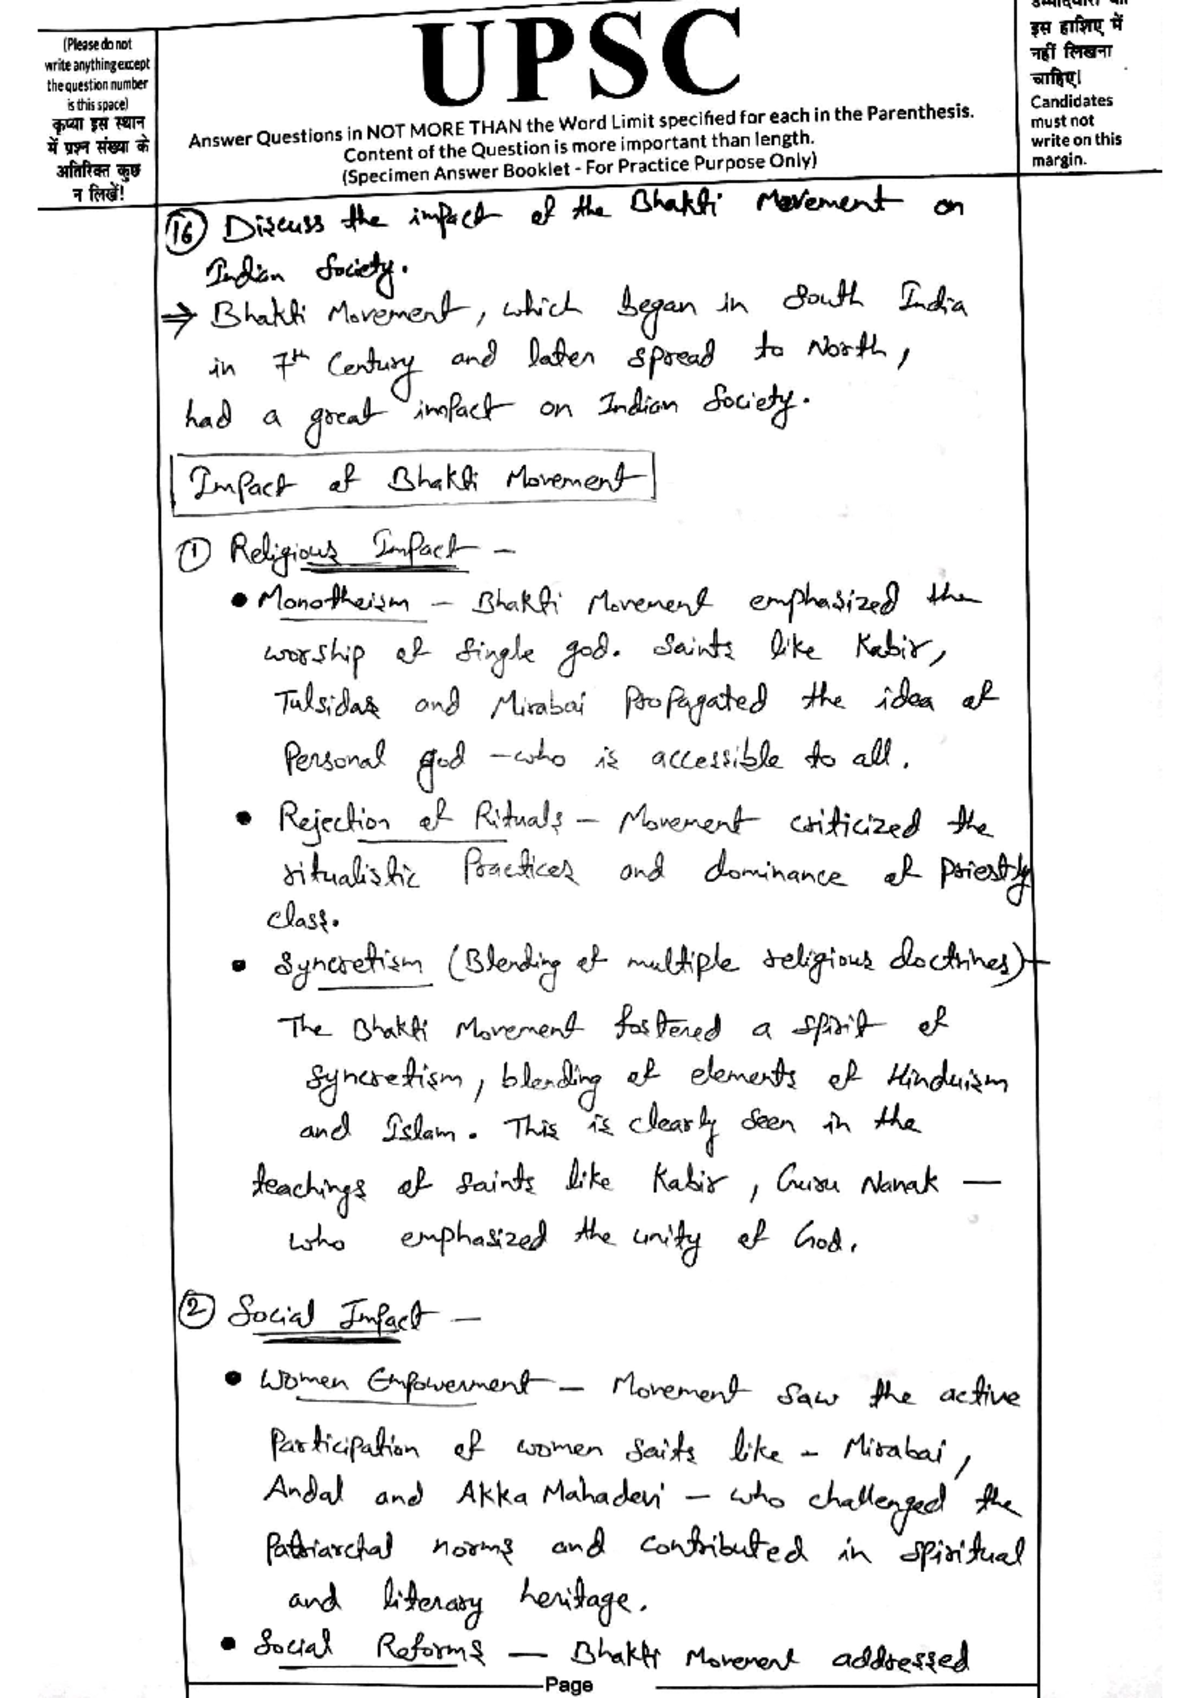 (Please do not
write anything except
the question number
is this space)
कृप्या इस स्थान
में प्रश्न संख्या के
अतिरिक्त कुछ
न लिखें!
UPSC
Answer Questions in NOT MORE THAN the Word Limit specified for each in the Parenthesis.
Content of the Question is more important than length.
(Specimen Answer Booklet - For Practice Purpose Only)
इस हाशिए में
नहीं लिखना
चाहिए।
Candidates
must not
write on this
margin.
16 Discuss the impact of the Bhakti Movement on
Indian Society.
⇒ Bhakti Movement, which began in South India
in 7th Century and later spread to North,
had a great impact on Indian Society.
Impact of Bhakti Movement
① Religious Impact –
• Monotheism – Bhakti Movement emphasized the
worship of single god. Saints like Kabir,
Tulsidas and Mirabai propagated the idea of
Personal god – who is accessible to all.
• Rejection of Rituals – Movement criticized the
ritualistic practices and dominance of priestly
class.
• Syncretism (Blending of multiple religious doctrines) –
The Bhakti Movement fostered a spirit of
syncretism, blending of elements of Hinduism
and Islam. This is clearly seen in the
teachings of saints like Kabir, Guru Nanak —
who emphasized the unity of God.
② Social Impact –
• Women Empowerment – Movement saw the active
participation of women saits like – Mirabai,
Andal and Akka Mahadevi – who challenged the
patriarchal norms and contributed in spiritual
and literary heritage.
• Social Reforms — Bhakti Movement addressed
Page